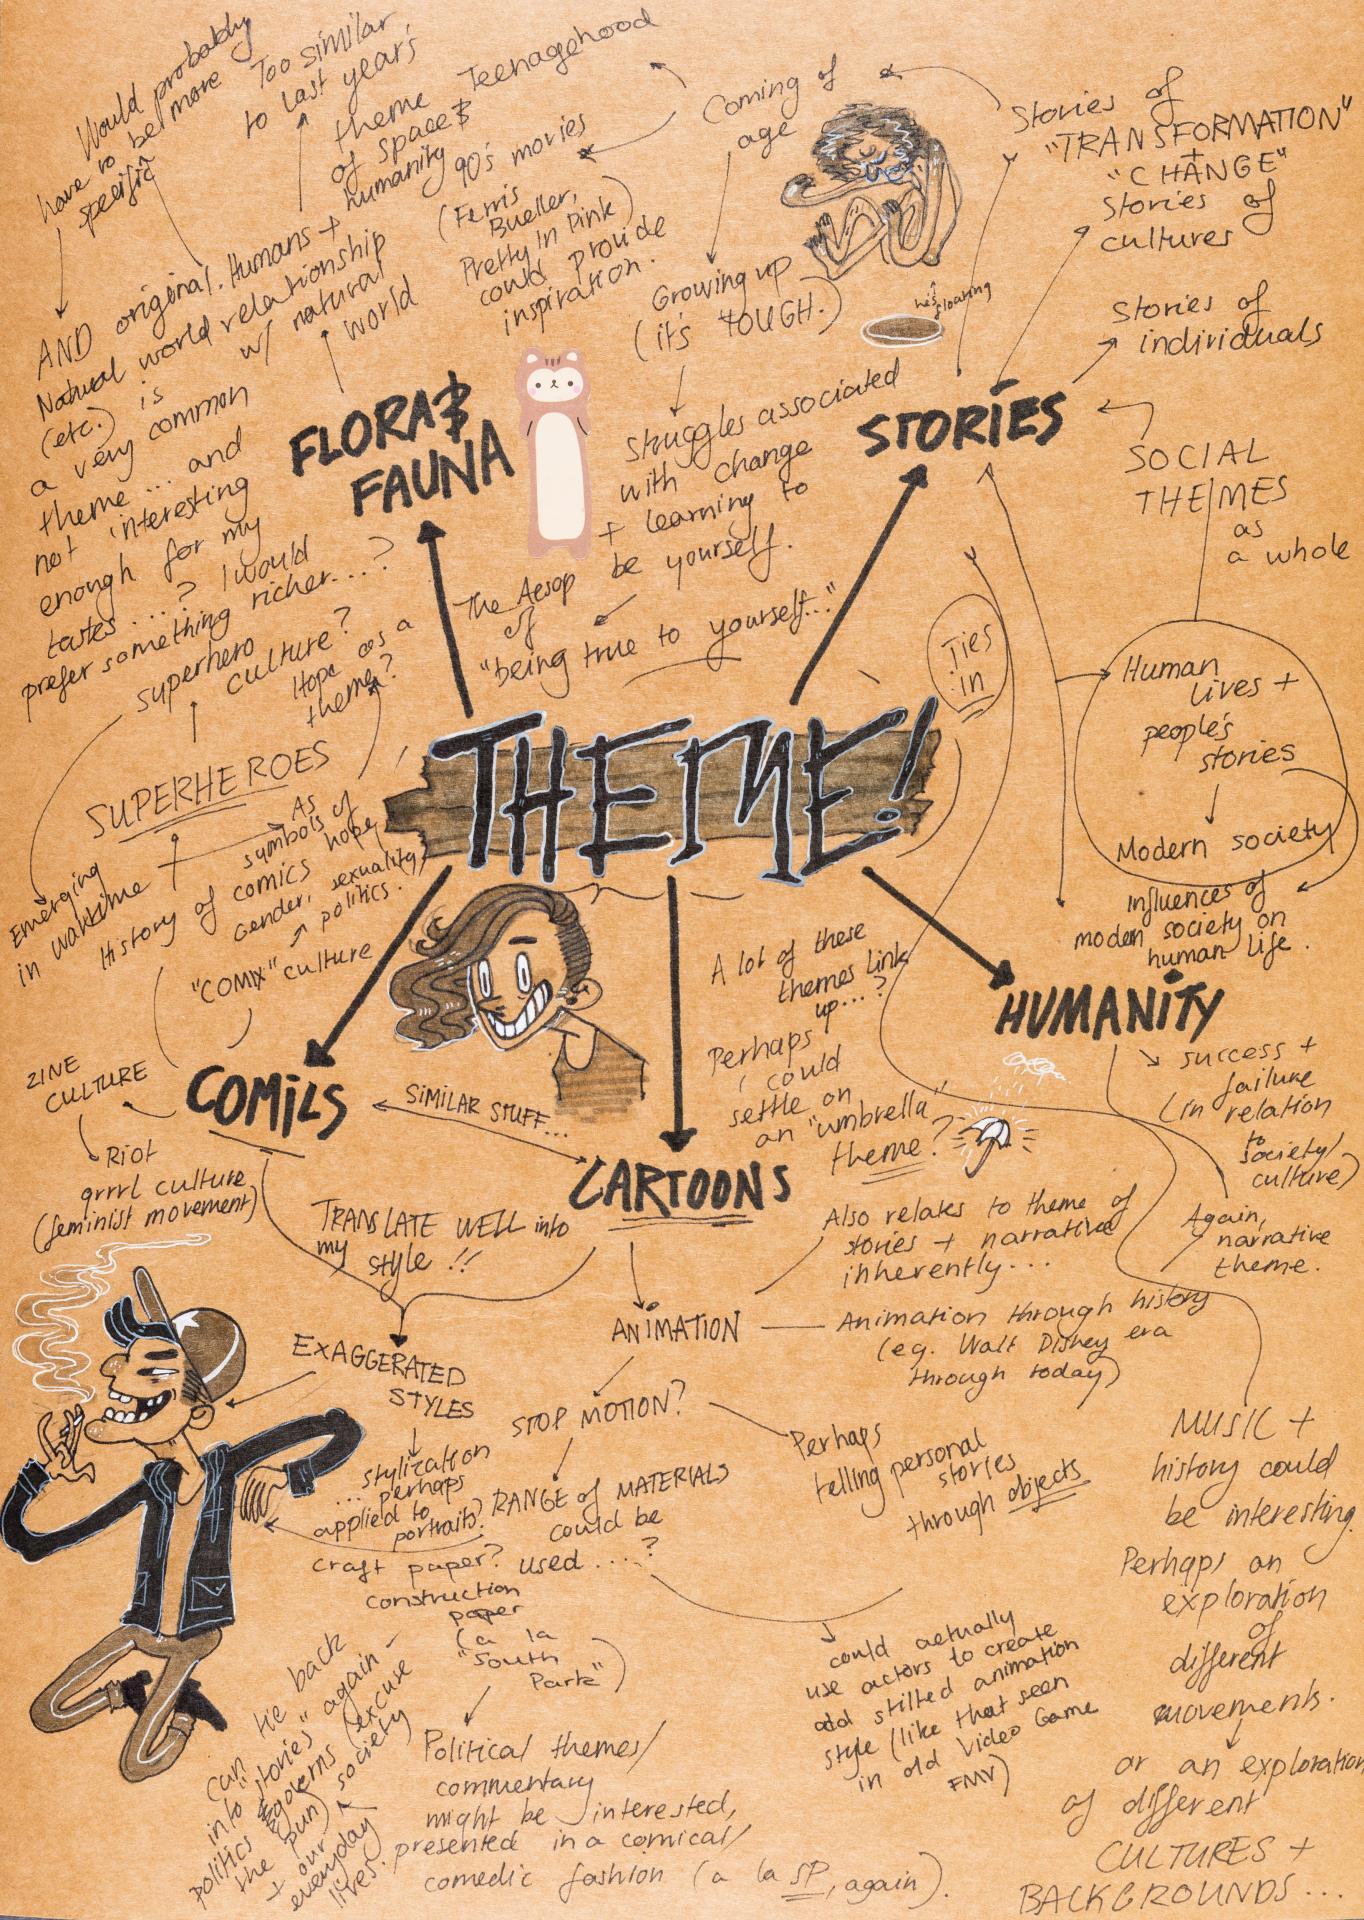 Would probably
have to be more
specific
Too similar
to last year's
theme
of space &
humanity
AND original. Humans +
Natural world relationship
(etc.) is w/ natural
a very common world
theme... and
not interesting
enough for my
tastes...? I would
prefer something richer....?
FLORA &
FAUNA
Teenagehood
90's movies
(Ferris
Bueller,
Pretty In Pink)
could provide
inspiration.
Coming of
age
Growing up
(it's TOUGH.)
Struggles associated
with change
+ learning to
be yourself.
The Aesop
of
"being true to yourself..."
he's floating
Stories of
"TRANSFORMATION"
+
"CHANGE"
Stories of
cultures
Stories of
individuals
STORIES
SOCIAL
THEMES
as
a whole
Ties
in
Human
lives +
people's
stories
Modern society
Influences of
modern society on
human life.
THEME!
superhero
culture?
Hope as a
theme?
SUPERHEROES
As
symbols of
hope
Emerging
in wartime
History of comics
Gender, sexuality,
politics.
"COMIX" culture
ZINE
CULTURE
Riot
grrrl culture
(feminist movement)
COMICS
SIMILAR STUFF...
CARTOONS
A lot of these
themes link
up...?
Perhaps
I could
settle on
an "umbrella"
theme?
HUMANITY
success +
failure
(in relation
to
society/
culture)
Again,
narrative
theme.
TRANSLATE WELL into
my
style!!
Also relates to theme of
stories + narrative
inherently...
ANIMATION
Animation through history
(eg. Walt Disney era
through today)
EXAGGERATED
STYLES
stylization
... perhaps
applied to
portraits?
STOP MOTION?
Perhaps
telling personal
stories
through objects
RANGE of MATERIALS
could be
used....?
craft paper?
construction
paper
(a la
"South
Park")
could actually
use actors to create
odd stilted animation
style (like that seen
in old Video Game
FMV)
MUSIC +
history could
be interesting.
Perhaps an
exploration
of
different
movements.
or an exploration
of different
CULTURES +
BACKGROUNDS...
Can tie back
into "stories" again -
politics governs (excuse
the pun) society
+ our
everyday
lives.
Political themes/
commentary
might be interested,
presented in a comical/
comedic fashion (a la SP, again).